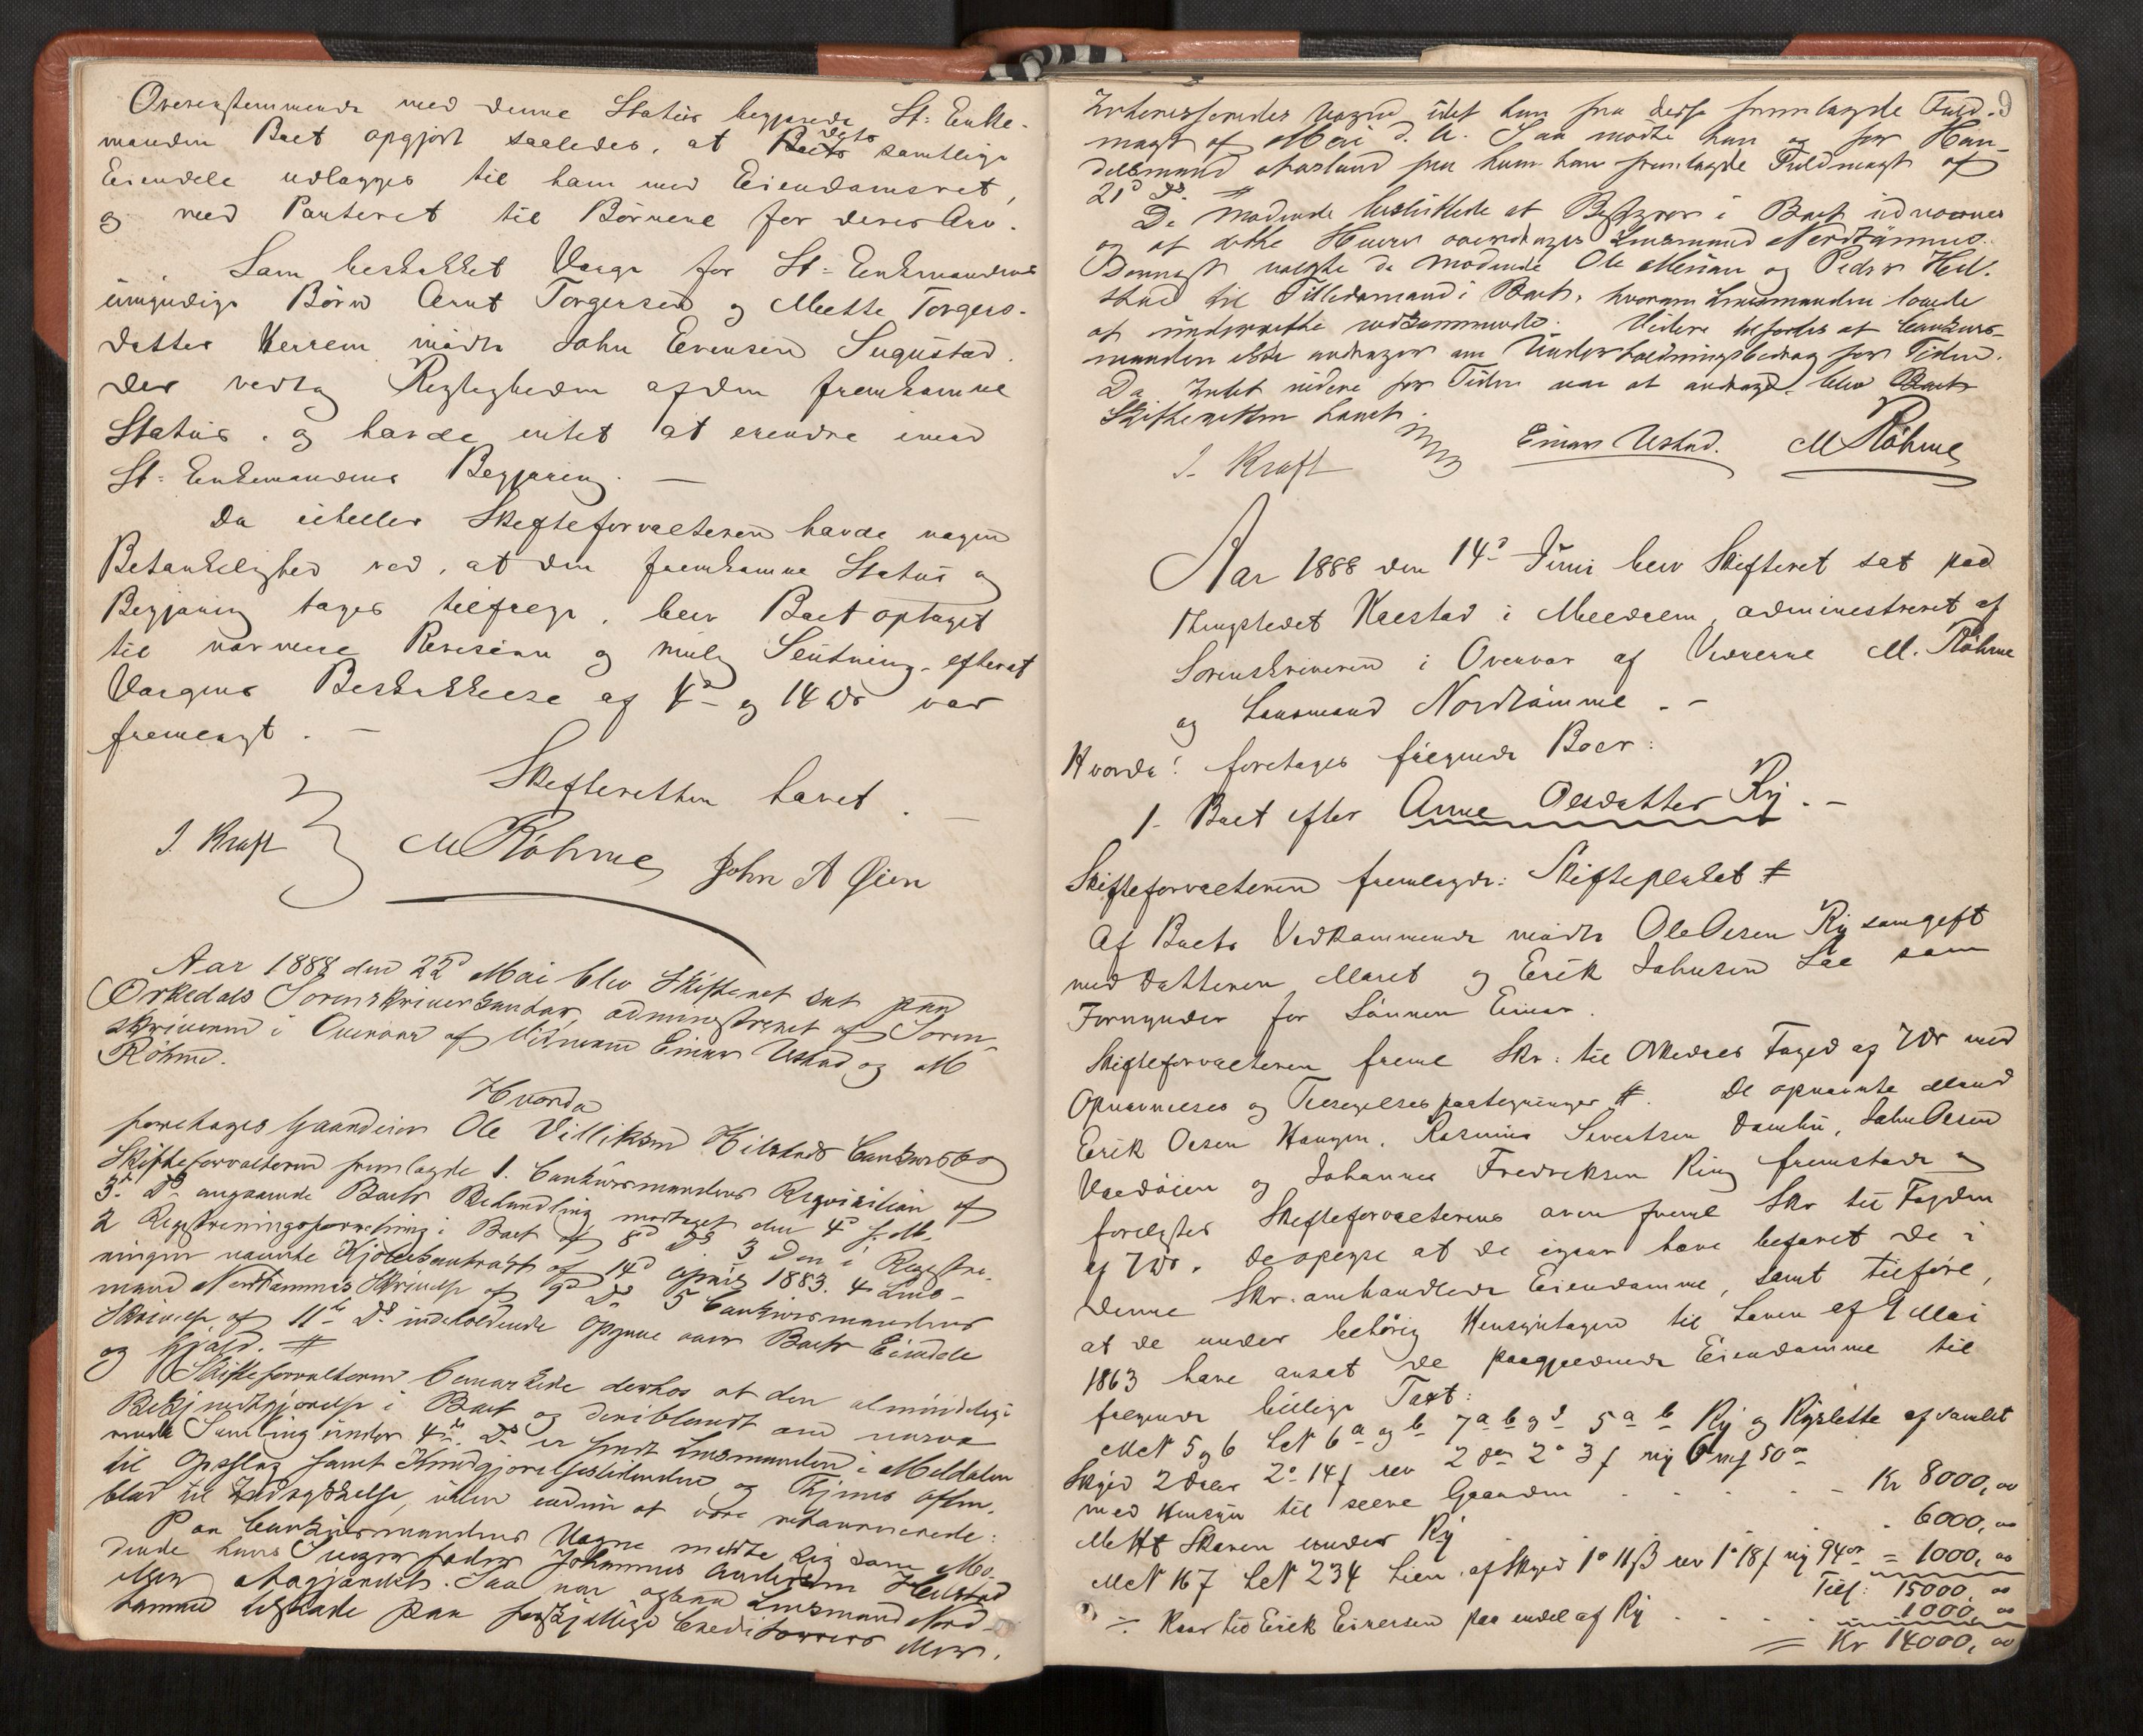 Overenstemmende med denne Status begjærede St: Enke-
manden Boet opgjort saaledes, at Boets dets samtlige
Eiendele udlægges til ham med Eiendomsret,
og med Panteret til Børnene for deres Arv.
Som beskikket Værge for St: Enkemandens
umyndige Børn Arnt Torgersen og Mette Torgers-
datter Herrem mødte John Evensen Sugustad.
der vedtog Rigtigheden af den fremkomne
Status, og havde intet at erindre imod
St: Enkemandens Begjæring. —
Da eiheller Skifteforvalteren havde nogen
Betænkelighed ved, at den fremkomne Status og
Begjæring toges tilfølge, blev Boet optaget
til nærmere Revision og mulig Slutning, efterat
Værgens Beskikkelse af 4d og 14 ds var
fremlagt. —
Skifteretten hævet. —
J. Kraft M Røhme John A Øien
Aar 1888 den 22d Mai blev Skifteret sat paa
Orkedals Sorenskriverkontor, administreret af Soren-
skriveren i Overvær af Vidnerne Einar Ustad og M
Røhme.
Hvorda
foretages Gaardeier Ole Villiksen Hilstads Conkursbo
Skifteforvalteren fremlagde 1. Conkursmandens Reqvisition af
3d ds angaaende Boets Behandling modtaget den 4d s. M.
2 Registreringsforretning i Boet af 8d Ds 3 Den i Registre-
ningen nævnte Kjøbekontrakt af 14d April 1883. 4 Lens-
mand Nordtømmes Skrivelse af 9d Ds 5 Conkursmandens
Skrivelse af 11te Ds indeholdende Opgave over Boets Eiendele
og Gjæld. #
Skifteforvalteren bemærkede derhos at den almindelige
Bekjendtgjørelse i Boet og deriblandt om nærvæ
rende Samling under 4de Ds er sendt Lensmanden i Meldalen
til Opslag samt Kundgjørelsestidenden og Thjems Aften-
blad til Indrykkelse, uden endnu at være retournerede.
Paa Conkursmandens Vegne mødte sig som Mø-
dende hans Svigerfader Johannes Hilstad
Saa var ogsaa Lensmand Nord-
tømme tilstede paa forskjellige Creditorers
Interesseredes Vegne idet han fra disse fremlagde Fuld-
magt af Mai d. A. Saa mødte han og for Han-
delsmand Aarlund fra hvem han fremlagde Fuldmagt af
21d Ds #
De Mødende besluttede at Bestyrer i Boet udnævnes
og at dette Hverv overdrages Lensmand Nordtømme.
Dernæst valgte de Mødende Ole Merian og Peder Hil-
stad til Tillidsmænd i Boet, hvorom Lensmanden lovede
at underrette vedkommende. Videre at Conkurs-
manden ikke andrager om Underholdningsbidrag for Tiden.
Da Intet videre for Tiden var at andrage, blev Boets
Skifteretten hævet.
J. Kraft Einar Ustad. M Røhme
Aar 1888 den 14d Juni blev Skifteret sat paa
Thingstedet Kaestad i Meldalen, administreret af
Sorenskriveren i Overvær af Vidnerne M. Røhme
og Lensmand Nordtømme. —
Hvorda! foretages følgende Boer:
1. Boet efter Anne Olsdatter Ry. —
Skifteforvalteren fremlagde: Skifteplakat #
Af Boets Vedkommende mødte Ole Olsen Ry som gift
med Datteren Maret og Erik Johnsen Loe som
Formynder for Sønnen Einar.
Skifteforvalteren freml Skr: til Orkedals Foged af 7 ds med
Opnævnelses og Tilsigelsespaategninger #. De opnævnte Mænd
Erik Olsen Haugen, Rasmus Sivertsen Damli, John Olsen
Vaadøien og Johannes Fredriksen Ring fremstode og
forelystes Skifteforvalterens oven freml Skr til Fogden
af 7 ds. De opgave at de igaar have befaret de i
denne Skr. omhandlede Eiendomme, samt tilføie,
at de under behørig Hensyntagen til Loven af 9 Mai
1863 have ansat de paagjældende Eiendomme til
følgende billige Taxt:
Mat N 5 og 6 LN 6a og b 7 a b og d 5 a b Ry og Ryslette af samlet
Skyld 2 Daler 2 o 14 ß rev 2 dr 2 o 3 ß ny 6 mk 50 øre
med Hensyn til selve Gaarden . . . . — Kr 8000,00
Mat N Skoven under Ry . 6000,00
Mat N 167 LN 234 Lien af Skyld 1 o 11 ß rev 1 o 18 ß ny 94 øre = 1000,00
Tils: 15000,00
÷ Kaar til Erik Einersen paa endel af Ry . . . . 1000,00
= Kr 14000,00